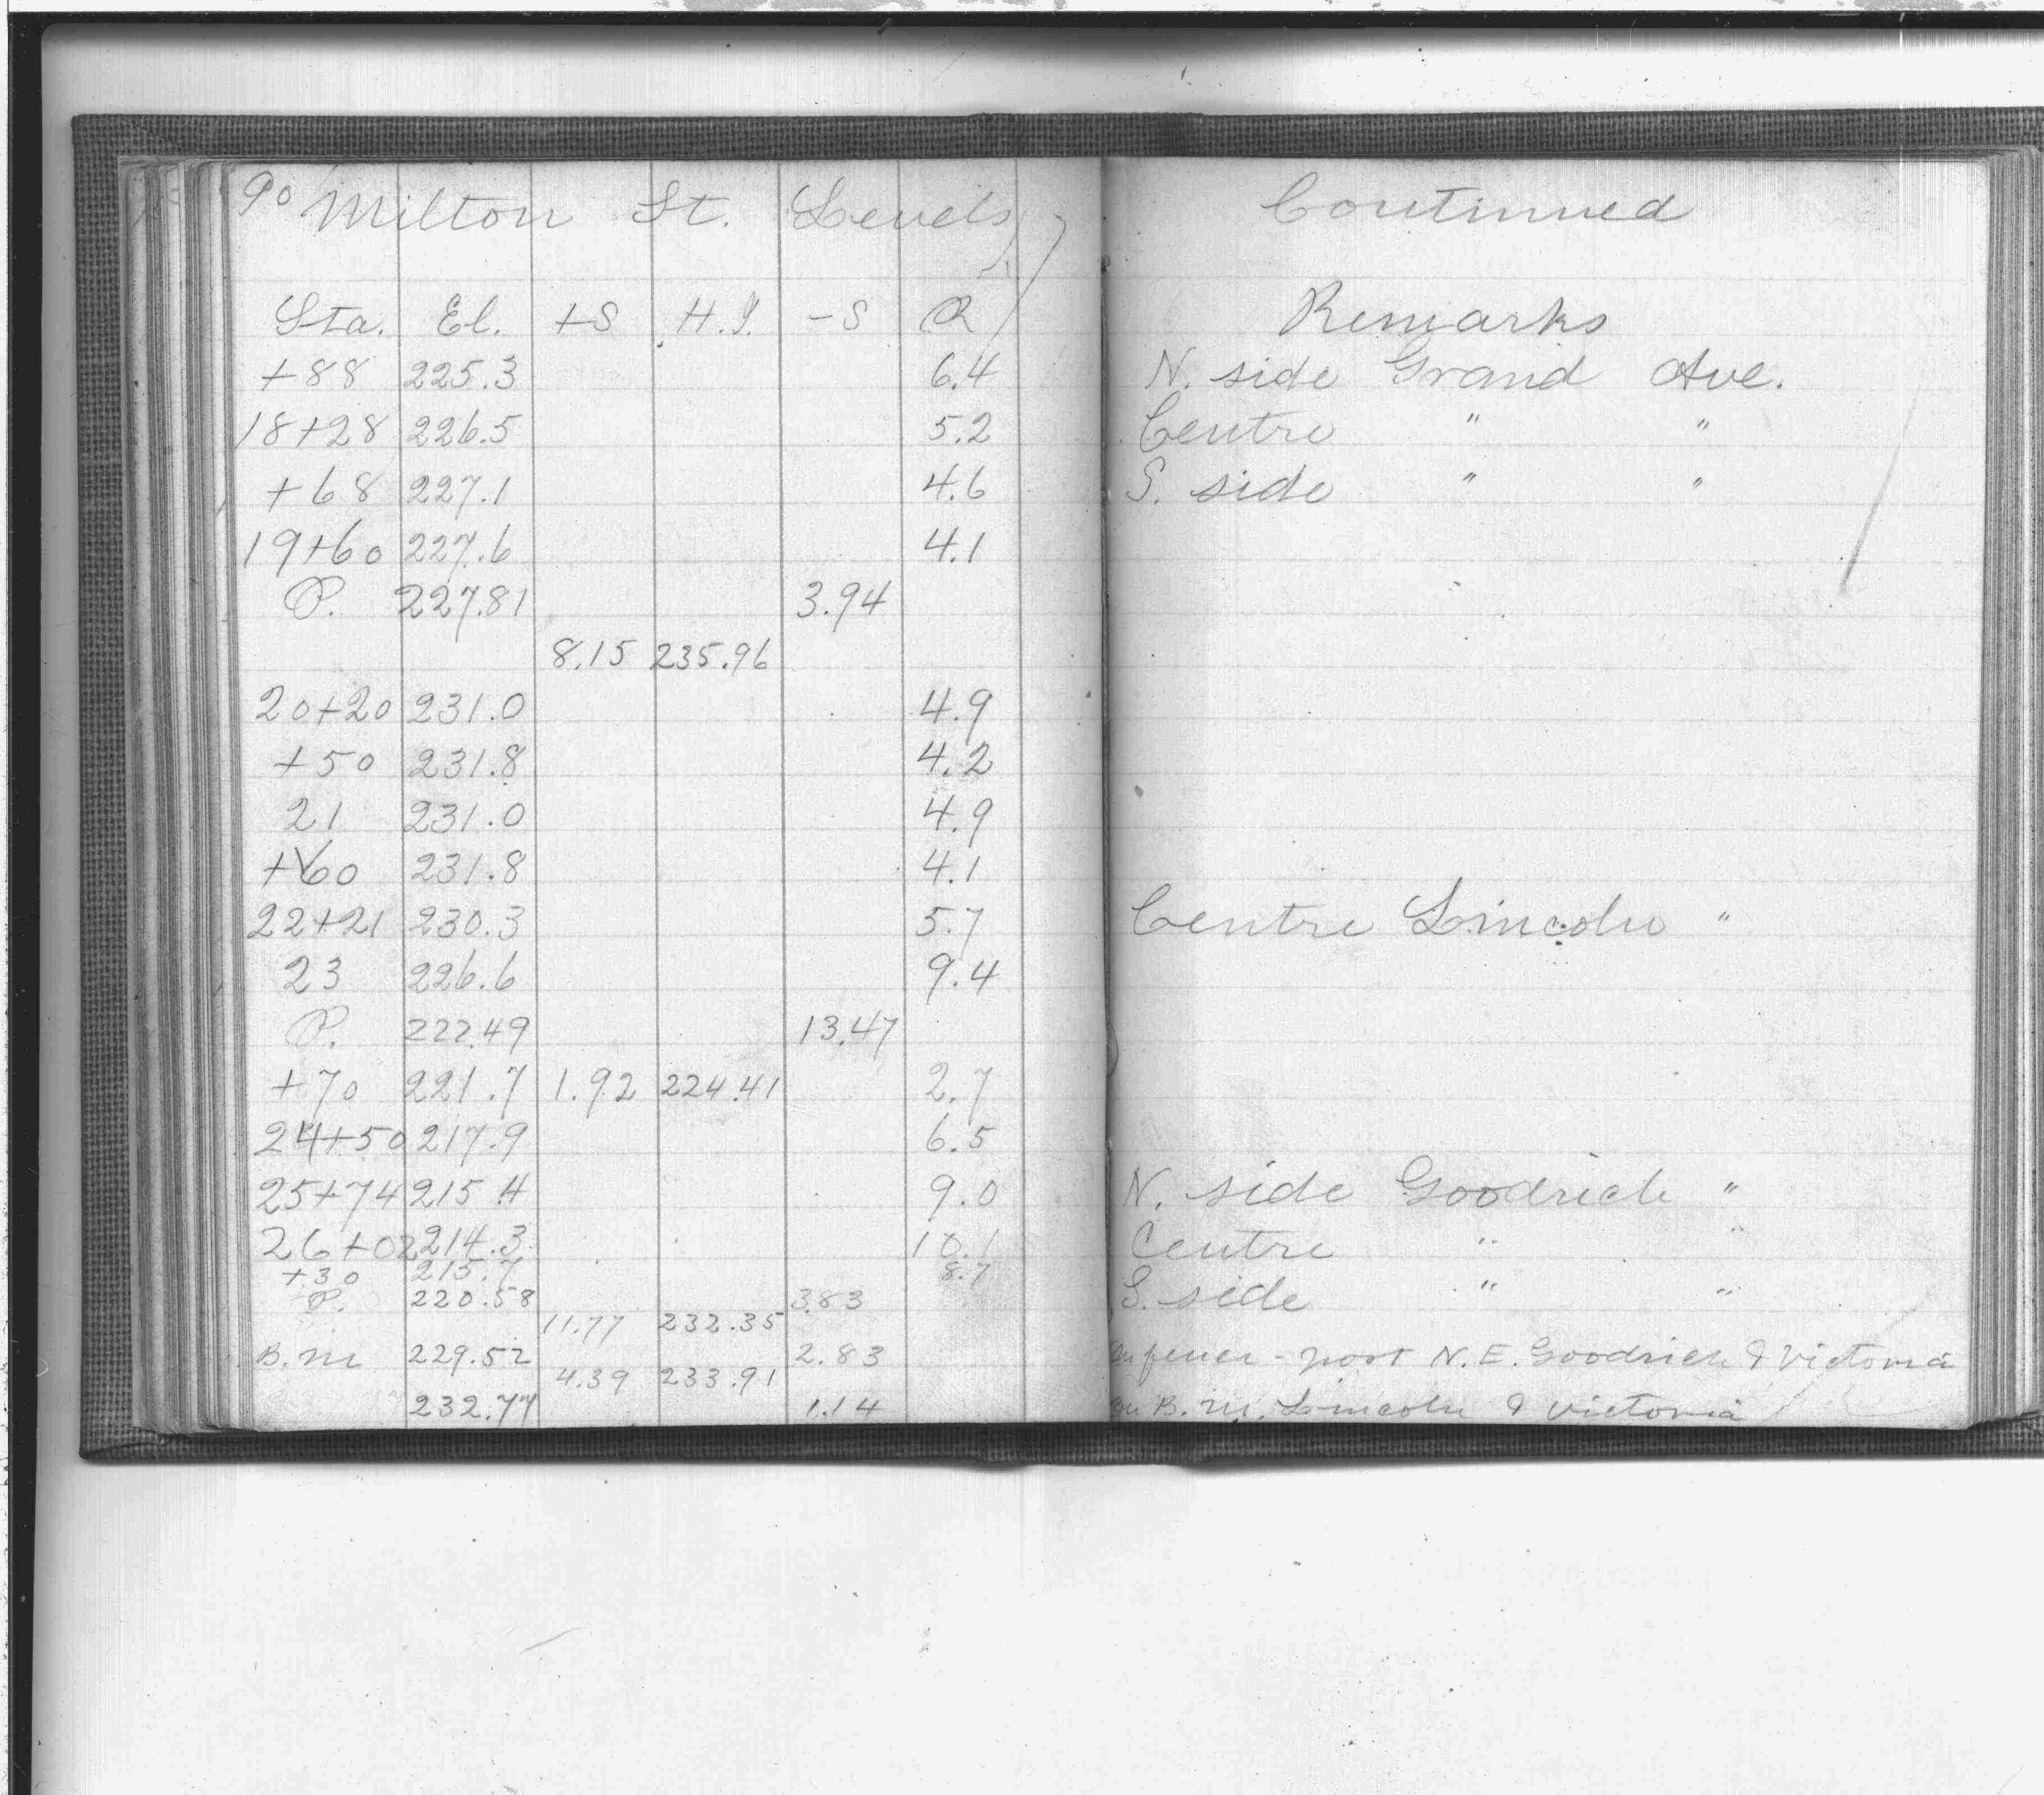 90 Milton St. Levels Continued
Sta. El. +S H.I. -S R Remarks
+88 225.3 6.4 N. side Grand Ave.
18+28 226.5 5.2 Centre " "
+68 227.1 4.6 S. side " "
19+60 227.6 4.1
P. 227.81 3.94
8.15 235.96
20+20 231.0 4.9
+50 231.8 4.2
21 231.0 4.9
+60 231.8 4.1
22+21 230.3 5.7 Centre Lincoln "
23 226.6 9.4
P. 222.49 13.47
+70 221.7 1.92 224.41 2.7
24+50 217.9 6.5
25+74 215.4 9.0 N. side Goodrich "
26+02 214.3 10.1 Centre " "
+30 215.7 8.7
P. 220.58 3.83 S. side " "
11.77 232.35
B.M 229.52 2.83 on fence-post N.E. Goodrich & Victoria
4.39 233.91
232.77 1.14 on B.M. Lincoln & Victoria